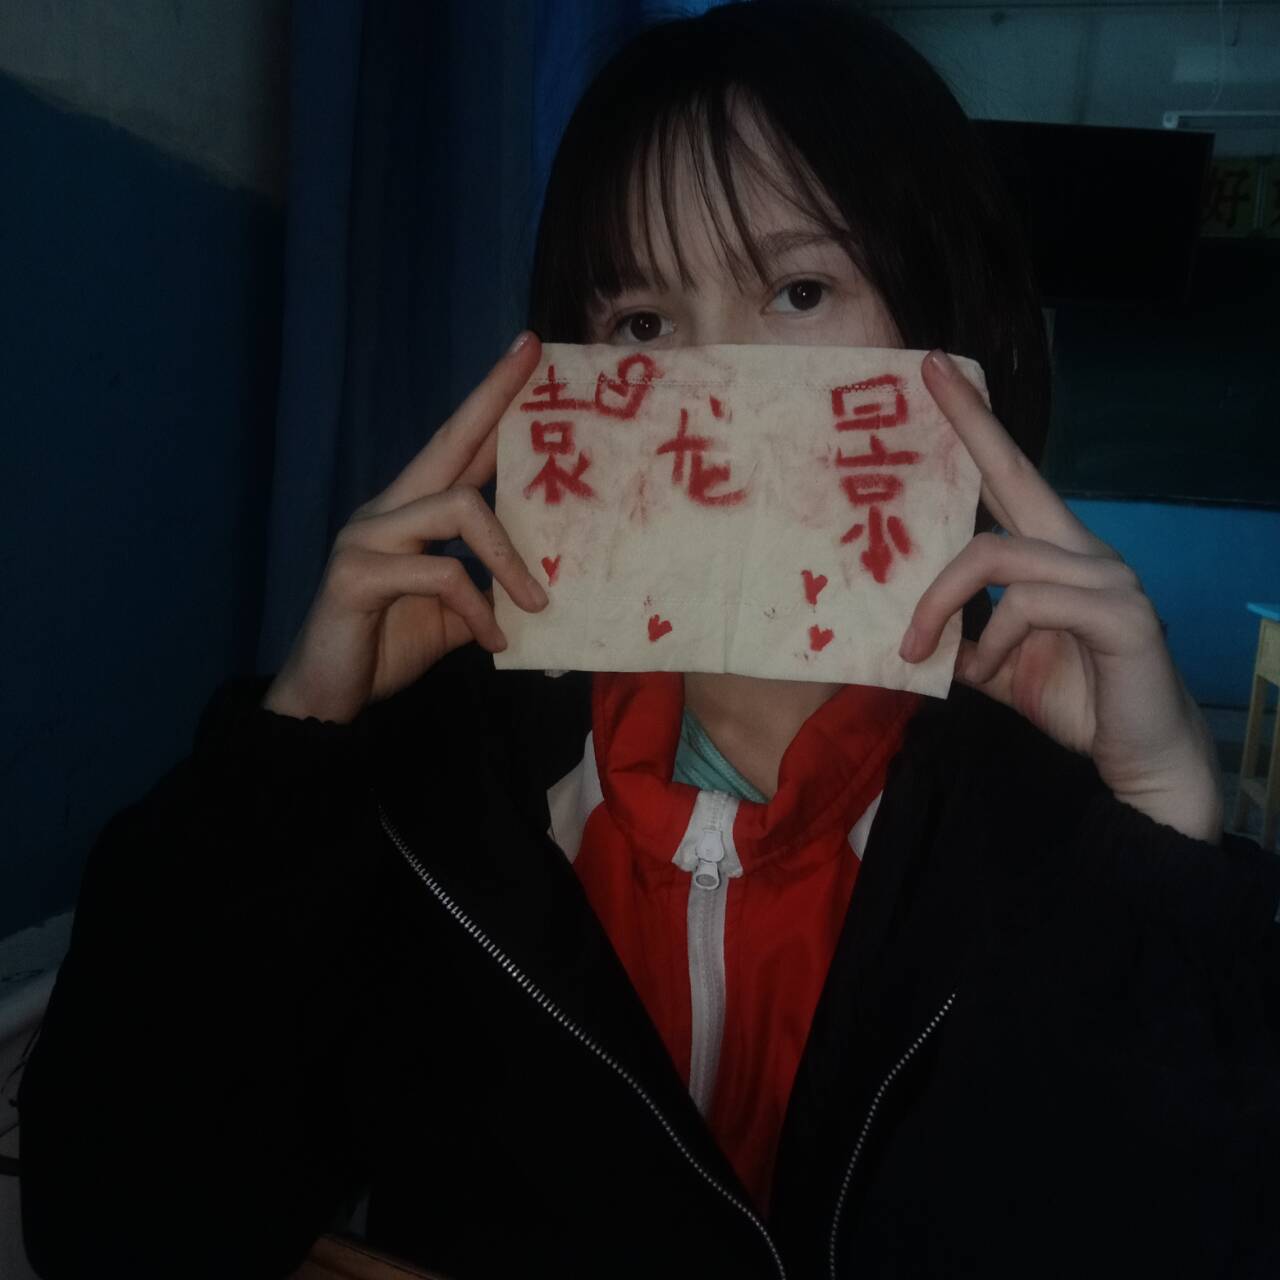 袁龙景
好